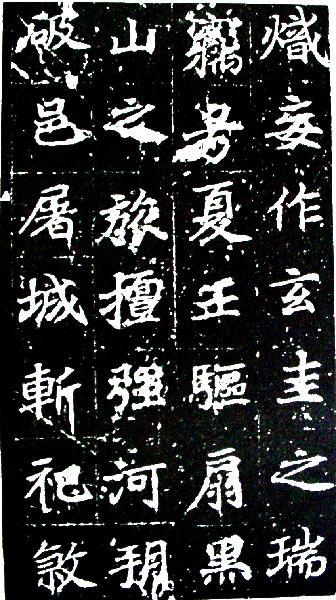 熾妄作玄圭之瑞
竊号夏王驅扇黒
山之旅擅强河朔
破邑屠城斬祀